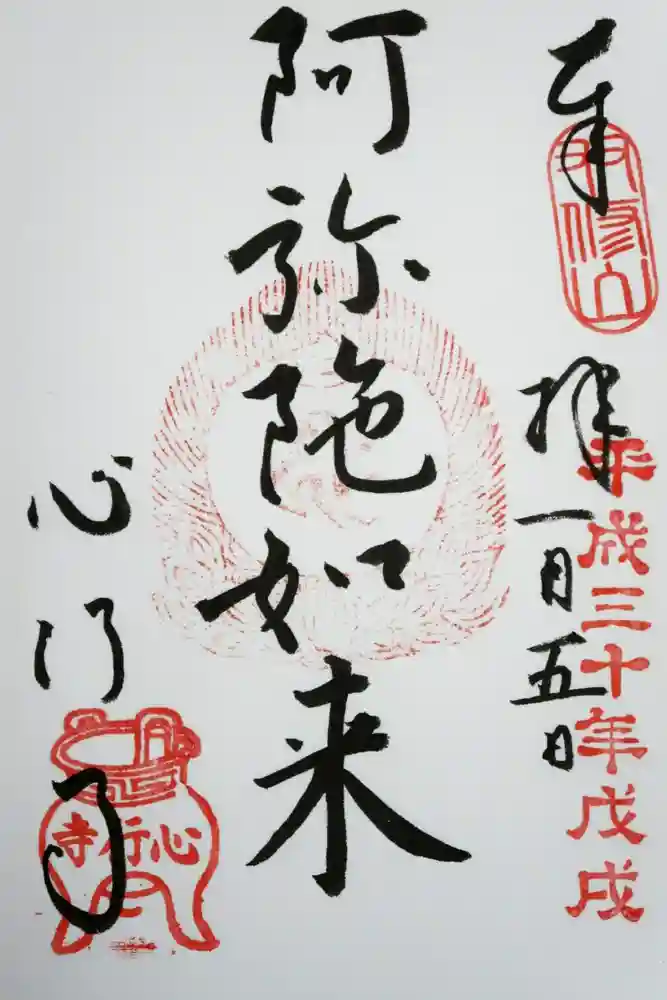 奉拝
平成三十年戊戌
一月五日
阿弥陀如来
心行寺
心行寺